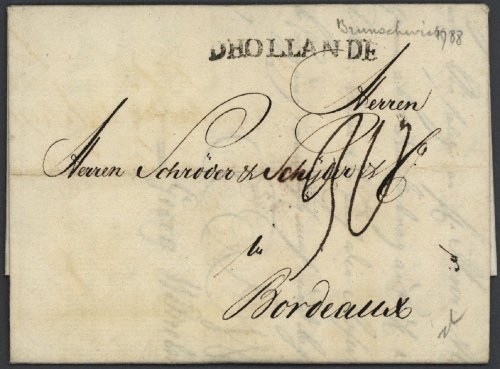 Brunschwick 1788
DHOLLANDE
Herren
Herren Schröder & Schÿler & Co
in
Bordeaux